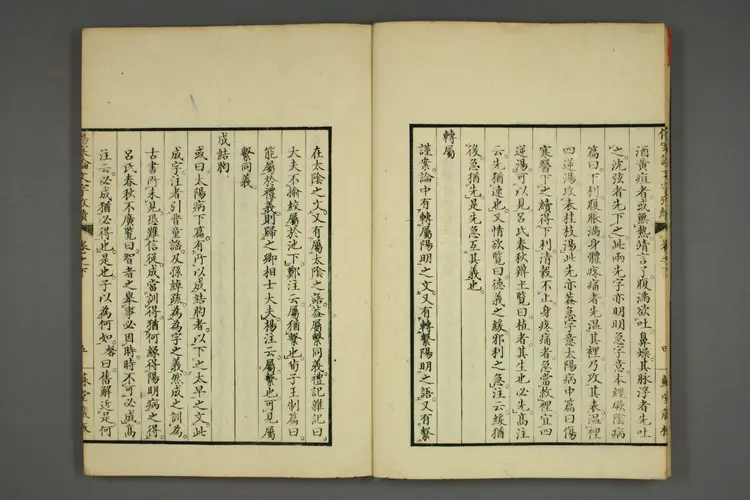 酒黄疸者或無熱靖言了腹満欲吐鼻燥其脉浮者先吐
之沈弦者先下之此兩先字亦明明急字意本經厥陰病
篇曰下利腹脹満身體疼痛者先温其裡乃攻其表温裡
四逆湯攻表桂枝湯此先亦蓋急字意太陽病中篇曰傷
寒醫下之續得下利清穀不止身疼痛者急當救裡宜四
逆湯可以見呂氏春秋辨土覽曰植者其生也必先高注
云先猶速也又情欲覽曰德義之緩邪利之急注云緩猶
後急猶先是先急互其義也
轉屬
謹案論中有轉屬陽明之文又有轉繫陽明之語又有繫
在太陰之文又有屬太陰之語蓋屬繫同義禮記雜記曰
大夫不揄絞屬於池下鄭注云屬猶繫也荀子王制篇曰
能屬於禮義則歸之卿相士大夫楊注云屬繫也可見屬
繫同義
成結胸
或曰太陽病下篇有所以成結胸者以下之太早之文此
成字注者引晋童謠及孫綽疏為為字之義然成之訓為
古書所未見恐難信從成當訓得猶何緣得陽明病之得
呂氏春秋不廣覽曰智者之舉事必因時時不可必成高
注云必成猶必得也是也子以為何如答曰舊解近是何